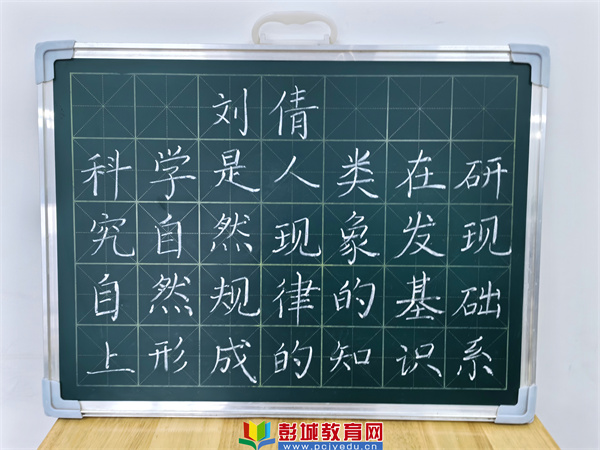 刘倩
科学是人类在研
究自然现象发现
自然规律的基础
上形成的知识系
彭城教育网
www.pcjyedu.cn